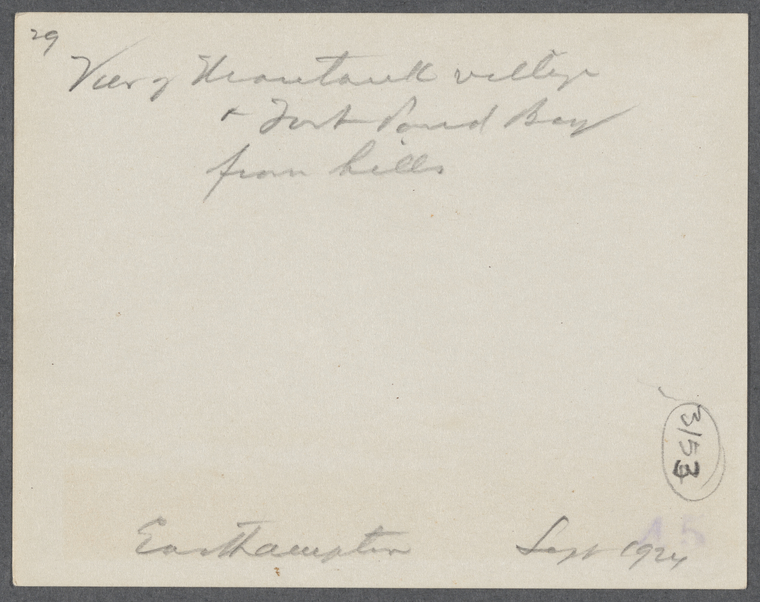 29
View of Montauk village
+ Fort Pond Bay
from hills
3153
Easthampton Sept 1924
45